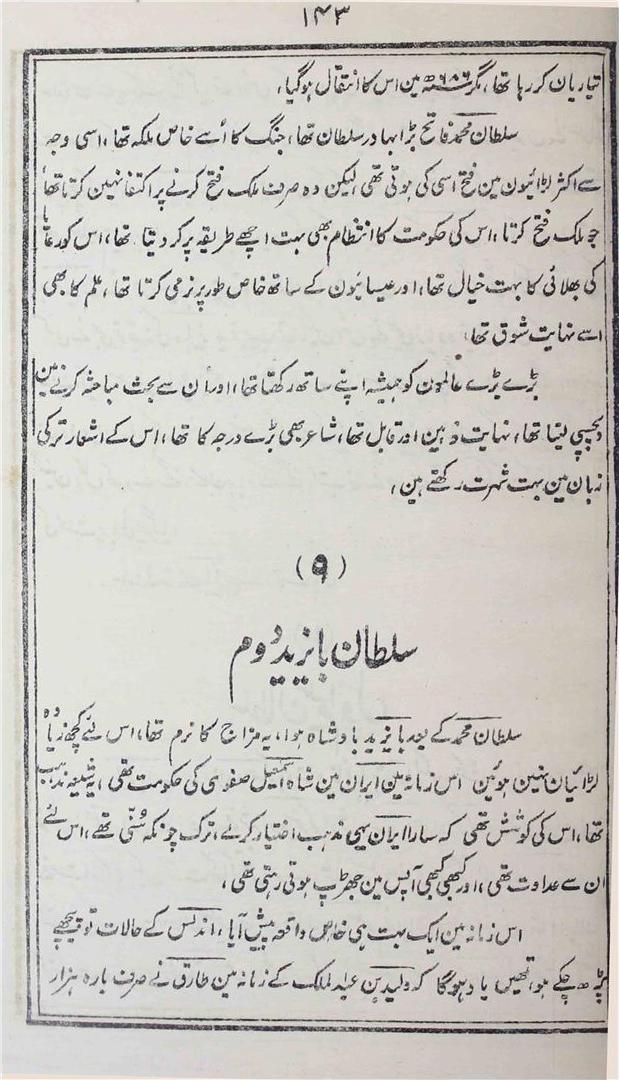 ۱۴۳
تیاریان کررہا تھا، مگر ۶۸۶ھ مین اس کا انتقال ہوگیا،
سلطان محمد فاتح بڑا بہادر سلطان تھا، جنگ کا اُسے خاص ملکہ تھا، اسی وجہ
سے اکثر لڑائیون مین فتح اسی کی ہوتی تھی لیکن وہ صرف ملک فتح کرنے پر اکتفا نہین کرتا تھا
جو ملک فتح کرتا، اس کی حکومت کا انتظام بھی بہت اچھے طریقہ پر کر دیتا تھا، اس کو رعایا
کی بھلائی کا بہت خیال تھا، اور عیسائیون کے ساتھ خاص طور پر نرمی کرتا تھا، علم کا بھی
اسے نہایت شوق تھا،
بڑے بڑے عالمون کو ہمیشہ اپنے ساتھ رکھتا تھا، اور اُن سے بحث مباحثہ کرنے مین
دلچسپی لیتا تھا، نہایت ذہین اور قابل تھا، شاعر بھی بڑے درجہ کا تھا، اس کے اشعار ترکی
زبان مین بہت شہرت رکھتے ہین،
(۹)
سلطان بایزید دوم
سلطان محمد کے بعد بایزید بادشاہ ہوا، یہ مزاج کا نرم تھا، اس لئے کچھ زیادہ
لڑائیان نہین ہوئین اس زمانہ مین ایران مین شاہ اسمٰعیل صفوی کی حکومت تھی، یہ شیعہ مذہب
تھا، اس کی کوشش تھی کہ سارا ایران یہی مذہب اختیار کرلے، ترک چونکہ سُنّی تھے، اس لئے
ان سے عداوت تھی، اور کبھی کبھی آپس مین جھڑپ ہوتی رہتی تھی،
اس زمانہ مین ایک بہت ہی خاص واقعہ پیش آیا، اندلس کے حالات تو پیچھے
پڑھ چکے ہو، تمھیں یاد ہوگا کہ ولید بن عبدالملک کے زمانہ مین طارق نے صرف بارہ ہزار